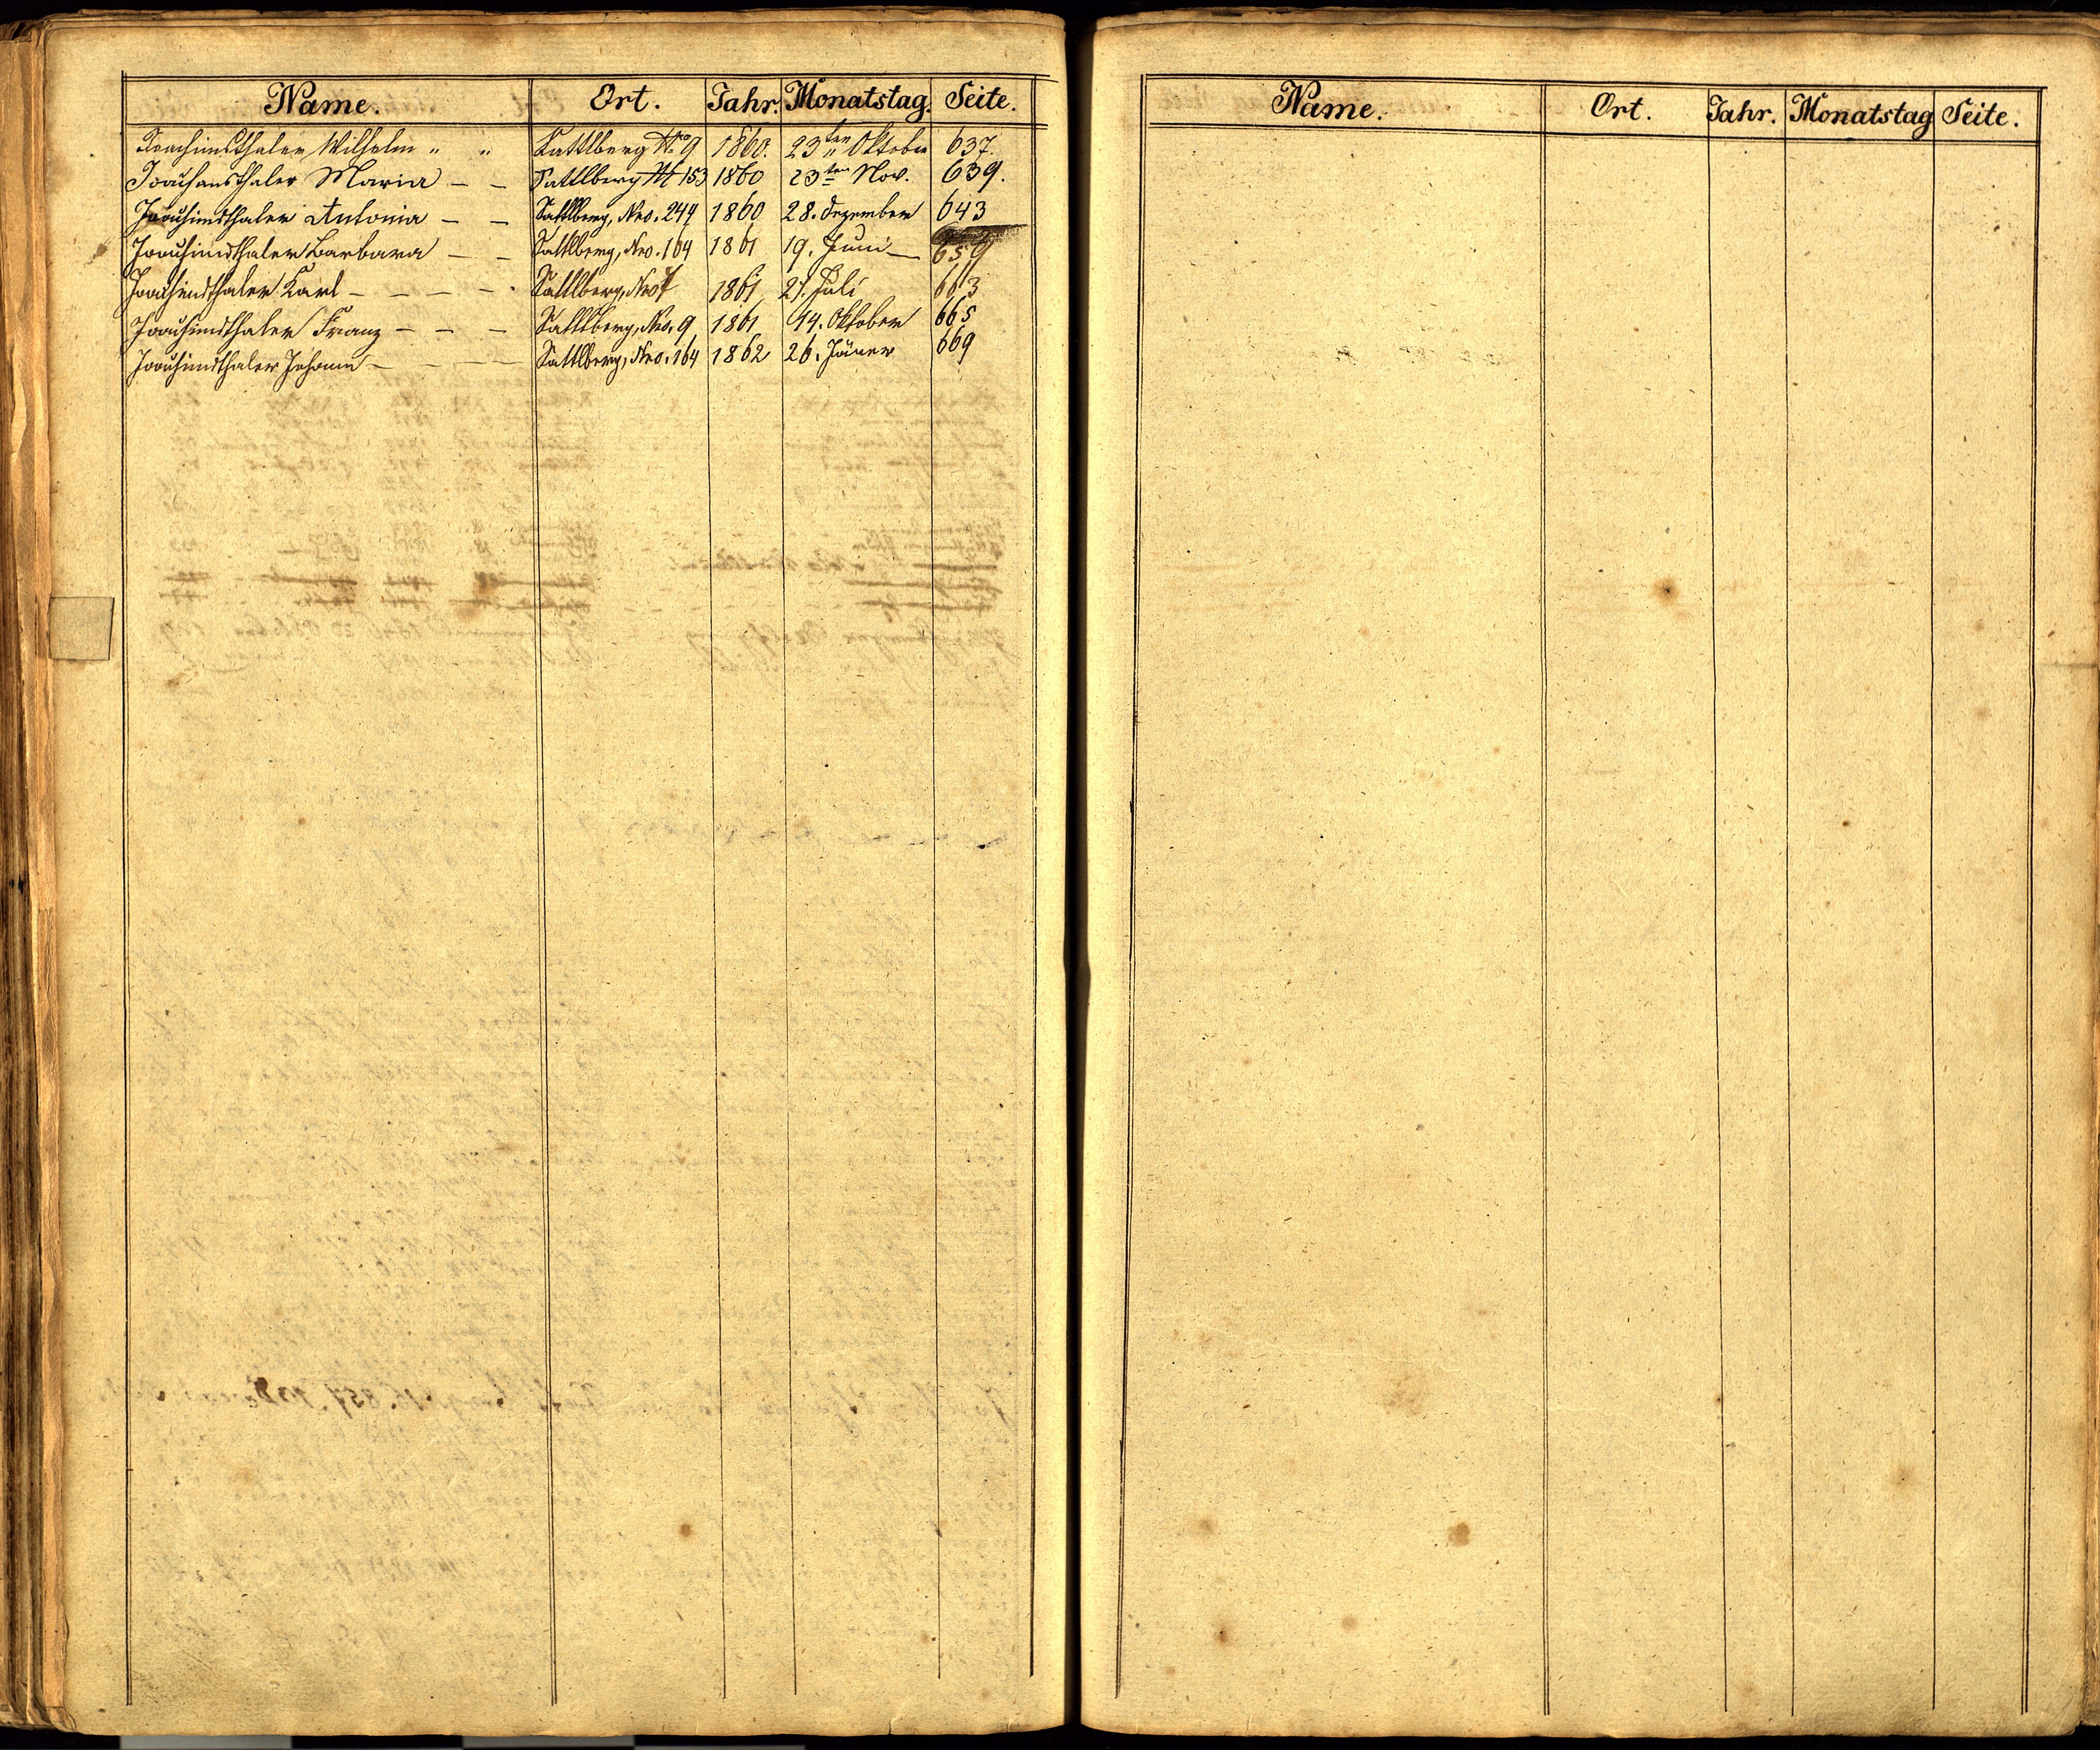 Name. Ort. Jahr. Monatstag. Seite.
Joachimsthaler Wilhelm " " Sattlberg No 9 1860. 23ten Oktober 637.
Joachimsthaler Maria – – Sattlberg N 153 1860 23ten Nov. 639.
Joachimsthaler Antonia – – Sattlberg, Nro. 244 1860 28. Dezember 643
Joachimsthaler Barbara – – Sattlberg, Nro. 164 1861 19. Juni – 659
Joachimsthaler Karl – – – – Sattlberg, Nro 1861 21. Juli 663
Joachimsthaler Franz – – – Sattlberg, Nro. 9 1861 14. Oktober 665
Joachimsthaler Johann – – – – Sattlberg, Nro. 164 1862 26. Jäner 669
Name. Ort. Jahr. Monatstag Seite.